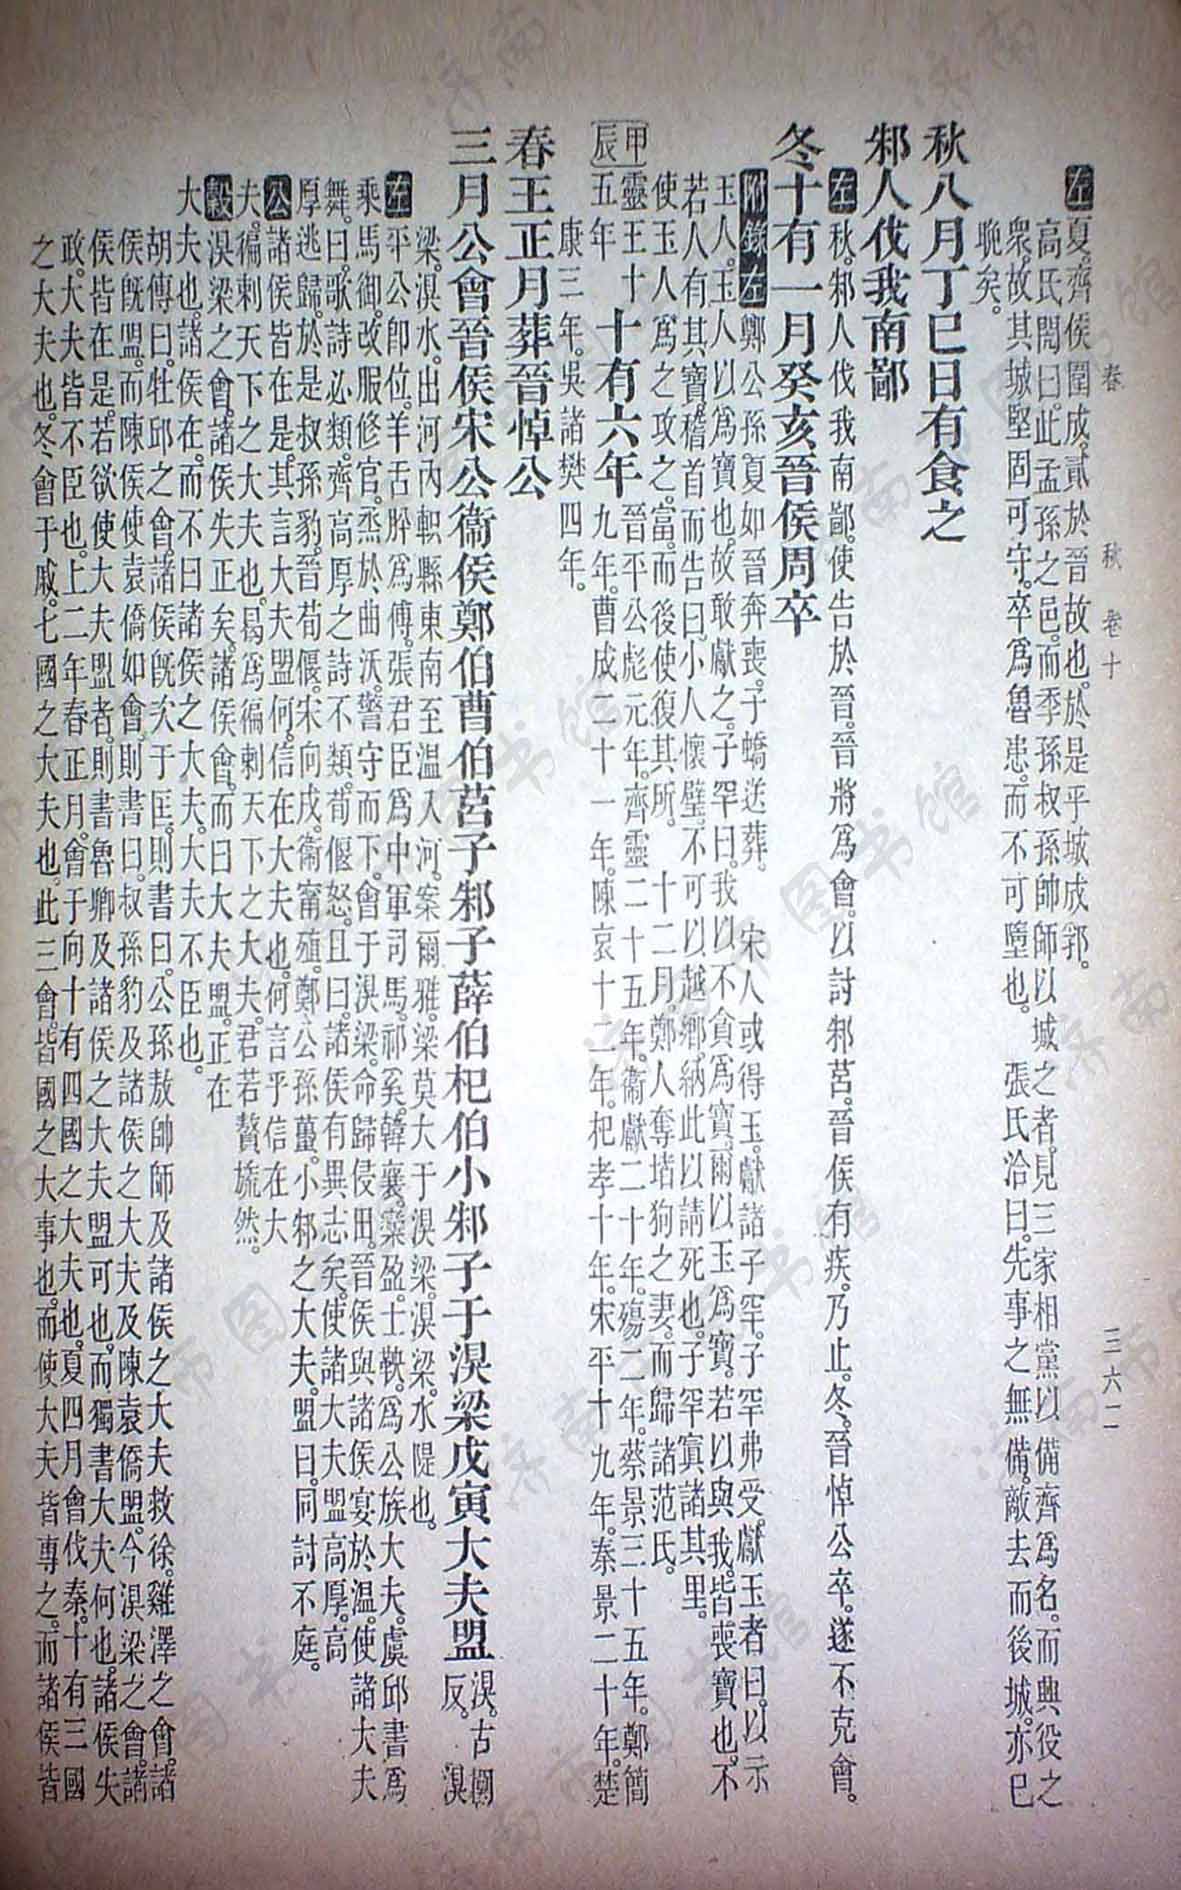 春 秋 卷十 三六二
左夏。齊侯圍成。貳於晉故也。於是乎城成郛。
高氏閌曰。此孟孫之邑。而季孫叔孫帥師以城之者。見三家相黨以備齊爲名。而興役之
衆。故其城堅固可守。卒爲魯患。而不可墮也。 張氏洽曰。先事之無備。敵去而後城。亦已
晩矣。
秋八月丁巳日有食之
邾人伐我南鄙
左秋。邾人伐我南鄙。使告於晉。晉將爲會。以討邾莒。晉侯有疾。乃止。冬。晉悼公卒。遂不克會。
冬十有一月癸亥晉侯周卒
附錄左鄭公孫夏如晉奔喪。子蟜送葬。 宋人或得玉。獻諸子罕。子罕弗受。獻玉者曰。以示
玉人。玉人以爲寶也。故敢獻之。子罕曰。我以不貪爲寶。爾以玉爲寶。若以與我。皆喪寶也。不
若人有其寶。稽首而告曰。小人懷璧。不可以越鄉。納此以請死也。子罕寘諸其里。
使玉人爲之攻之。富。而後使復其所。 十二月鄭人奪堵狗之妻。而歸諸范氏。
甲辰
靈王十五年
十有六年
晉平公彪元年。齊靈二十五年。衞獻二十年。殤二年。蔡景三十五年。鄭簡
九年。曹成二十一年。陳哀十二年。杞孝十年。宋平十九年。秦景二十年。楚
康三年。吳諸樊四年。
春王正月葬晉悼公
三月公會晉侯宋公衞侯鄭伯曹伯莒子邾子薛伯杞伯小邾子于湨梁戊寅大夫盟
湨。古闃反。 湨
梁。湨水。出河內軹縣東南至溫入河。案爾雅。梁莫大于湨梁。湨梁。水隄也。
左平公卽位。羊舌肸爲傅。張君臣爲中軍司馬。祁奚。韓襄。欒盈。士鞅。爲公族大夫。虞邱書爲
乘馬御。改服修官。烝於曲沃。警守而下。會于湨梁。命歸侵田。晉侯與諸侯宴於溫。使諸大夫
舞。曰。歌詩必類。齊高厚之詩不類。荀偃怒。且曰。諸侯有異志矣。使諸大夫盟高厚。高
厚逃歸。於是叔孫豹。晉荀偃。宋向戌。衞甯殖。鄭公孫蠆。小邾之大夫。盟曰。同討不庭。
公諸侯皆在是。其言大夫盟何。信在大夫也。何言乎信在大
夫。徧剌天下之大夫也。曷爲徧剌天下之大夫。君若贅旒然。
穀湨梁之會。諸侯失正矣。諸侯會。而曰大夫盟。正在
大夫也。諸侯在。而不曰諸侯之大夫。大夫不臣也。
胡傳曰。牡邱之會。諸侯旣次于匡。則書曰。公孫敖帥師及諸侯之大夫救徐。雞澤之會。諸
侯旣盟。而陳侯使袁僑如會。則書曰。叔孫豹及諸侯之大夫及陳袁僑盟。今湨梁之會。諸
侯皆在是。若欲使大夫盟者。則書魯卿及諸侯之大夫盟可也。而獨書大夫何也。諸侯失
政。大夫皆不臣也。上二年春正月。會于向。十有四國之大夫也。夏四月會伐秦。十有三國
之大夫也。冬會于戚。七國之大夫也。此三會。皆國之大事也。而使大夫皆專之。而諸侯皆